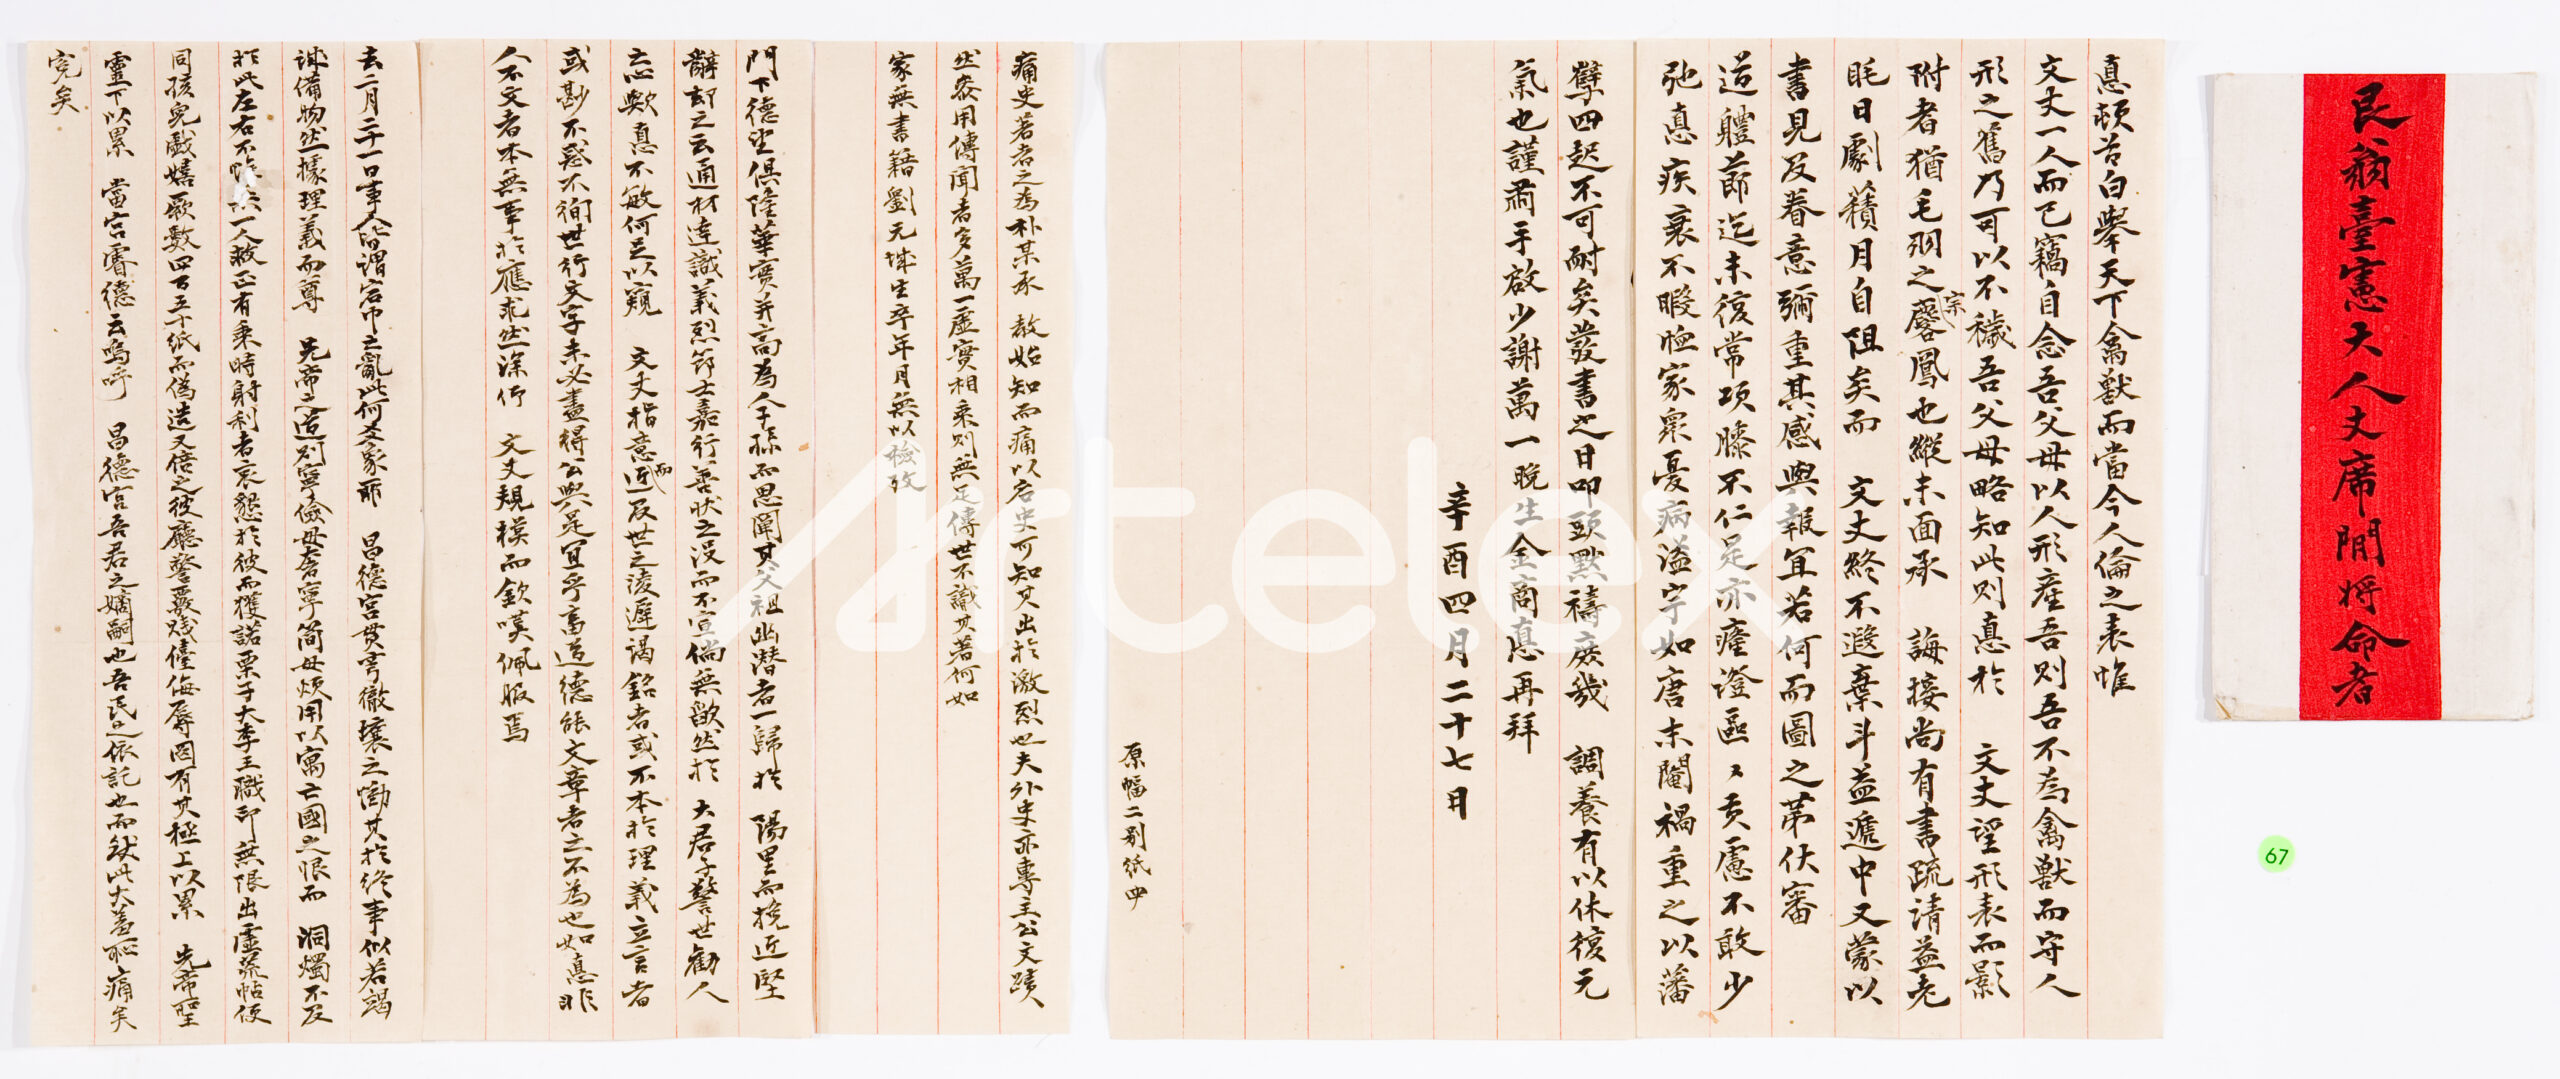 艮翁臺憲大人丈席閒將命者
67
悳頓首白擧天下禽獸而當今人倫之表惟
文丈一人而已竊自念吾父母以人形産吾則吾不爲禽獸而守人
形之舊乃可以不穢吾父母略知此則悳於 文丈望形表而影
附者猶毛羽之宗麐鳳也縱未面承 誨接尙有書疏請益老
眊日劇積月自阻矣而 文丈終不遐棄斗益遞中又蒙以
書見及眷意彌重其感與報宜若何而圖之苐伏審
道軆節迄未復常項膝不仁是亦瘽澄區〻貢慮不敢少
弛悳疾衰不暇恤家衆憂病溢宇如唐末閹禍重之以藩
孽四起不可耐矣發書之日叩頭默禱庶幾 調養有以休復元
氣也謹兩手啟少謝萬一晩生金商悳再拜
辛酉四月二十七日
原幅二別紙四
痛史著者之爲朴某承 敎始知而痛以名史可知其出於激烈也夫外史亦專主公文蹟
然忝用傳聞者多萬一虛實相乘則無足傳世不識其著何如
家無書籍劉元城生卒年月無以檢攷
門下德望俱隆華實幷高爲人子孫而思闡其父祖幽潛者一歸於 陽里而挽近堅
辭却之云通材達識義烈節士嘉行善狀之沒而不宣倘無歉然於 大君子警世勸人
志歟悳不敏何足以窺 文丈指意而近反世之淩遲謁銘者或不本於理義立言者
或尠不惑不徇世行文字未必盡得公與是宜乎畜道德能文章者之不爲也如悳非
人不文者本無事於應求然深仰 文丈規模而欽嘆佩服焉
去二月二十一日事僉皆謂宕巾之亂此何爻象耶 昌德宮貫穹徹壤之慟其於終事似若竭
誠備物然據理義而尊 先帝之道則寧儉毋奢寧簡毋煩用以寓亡國之恨而 洞燭不及
於此左右不一人救正有乘時射利者哀懇於彼而獲諾栗子大李王職印 無限出虛蒞帖便
同孩兒戲嬉厥數四百五十紙而僞造又倍之彼廳警覈賤儓侮辱罔有其極上以累 先帝聖
靈下以累 當宮睿德云嗚呼 昌德宮吾君之嫡嗣也吾民之依託也而致此大羞耻痛矣
冤矣